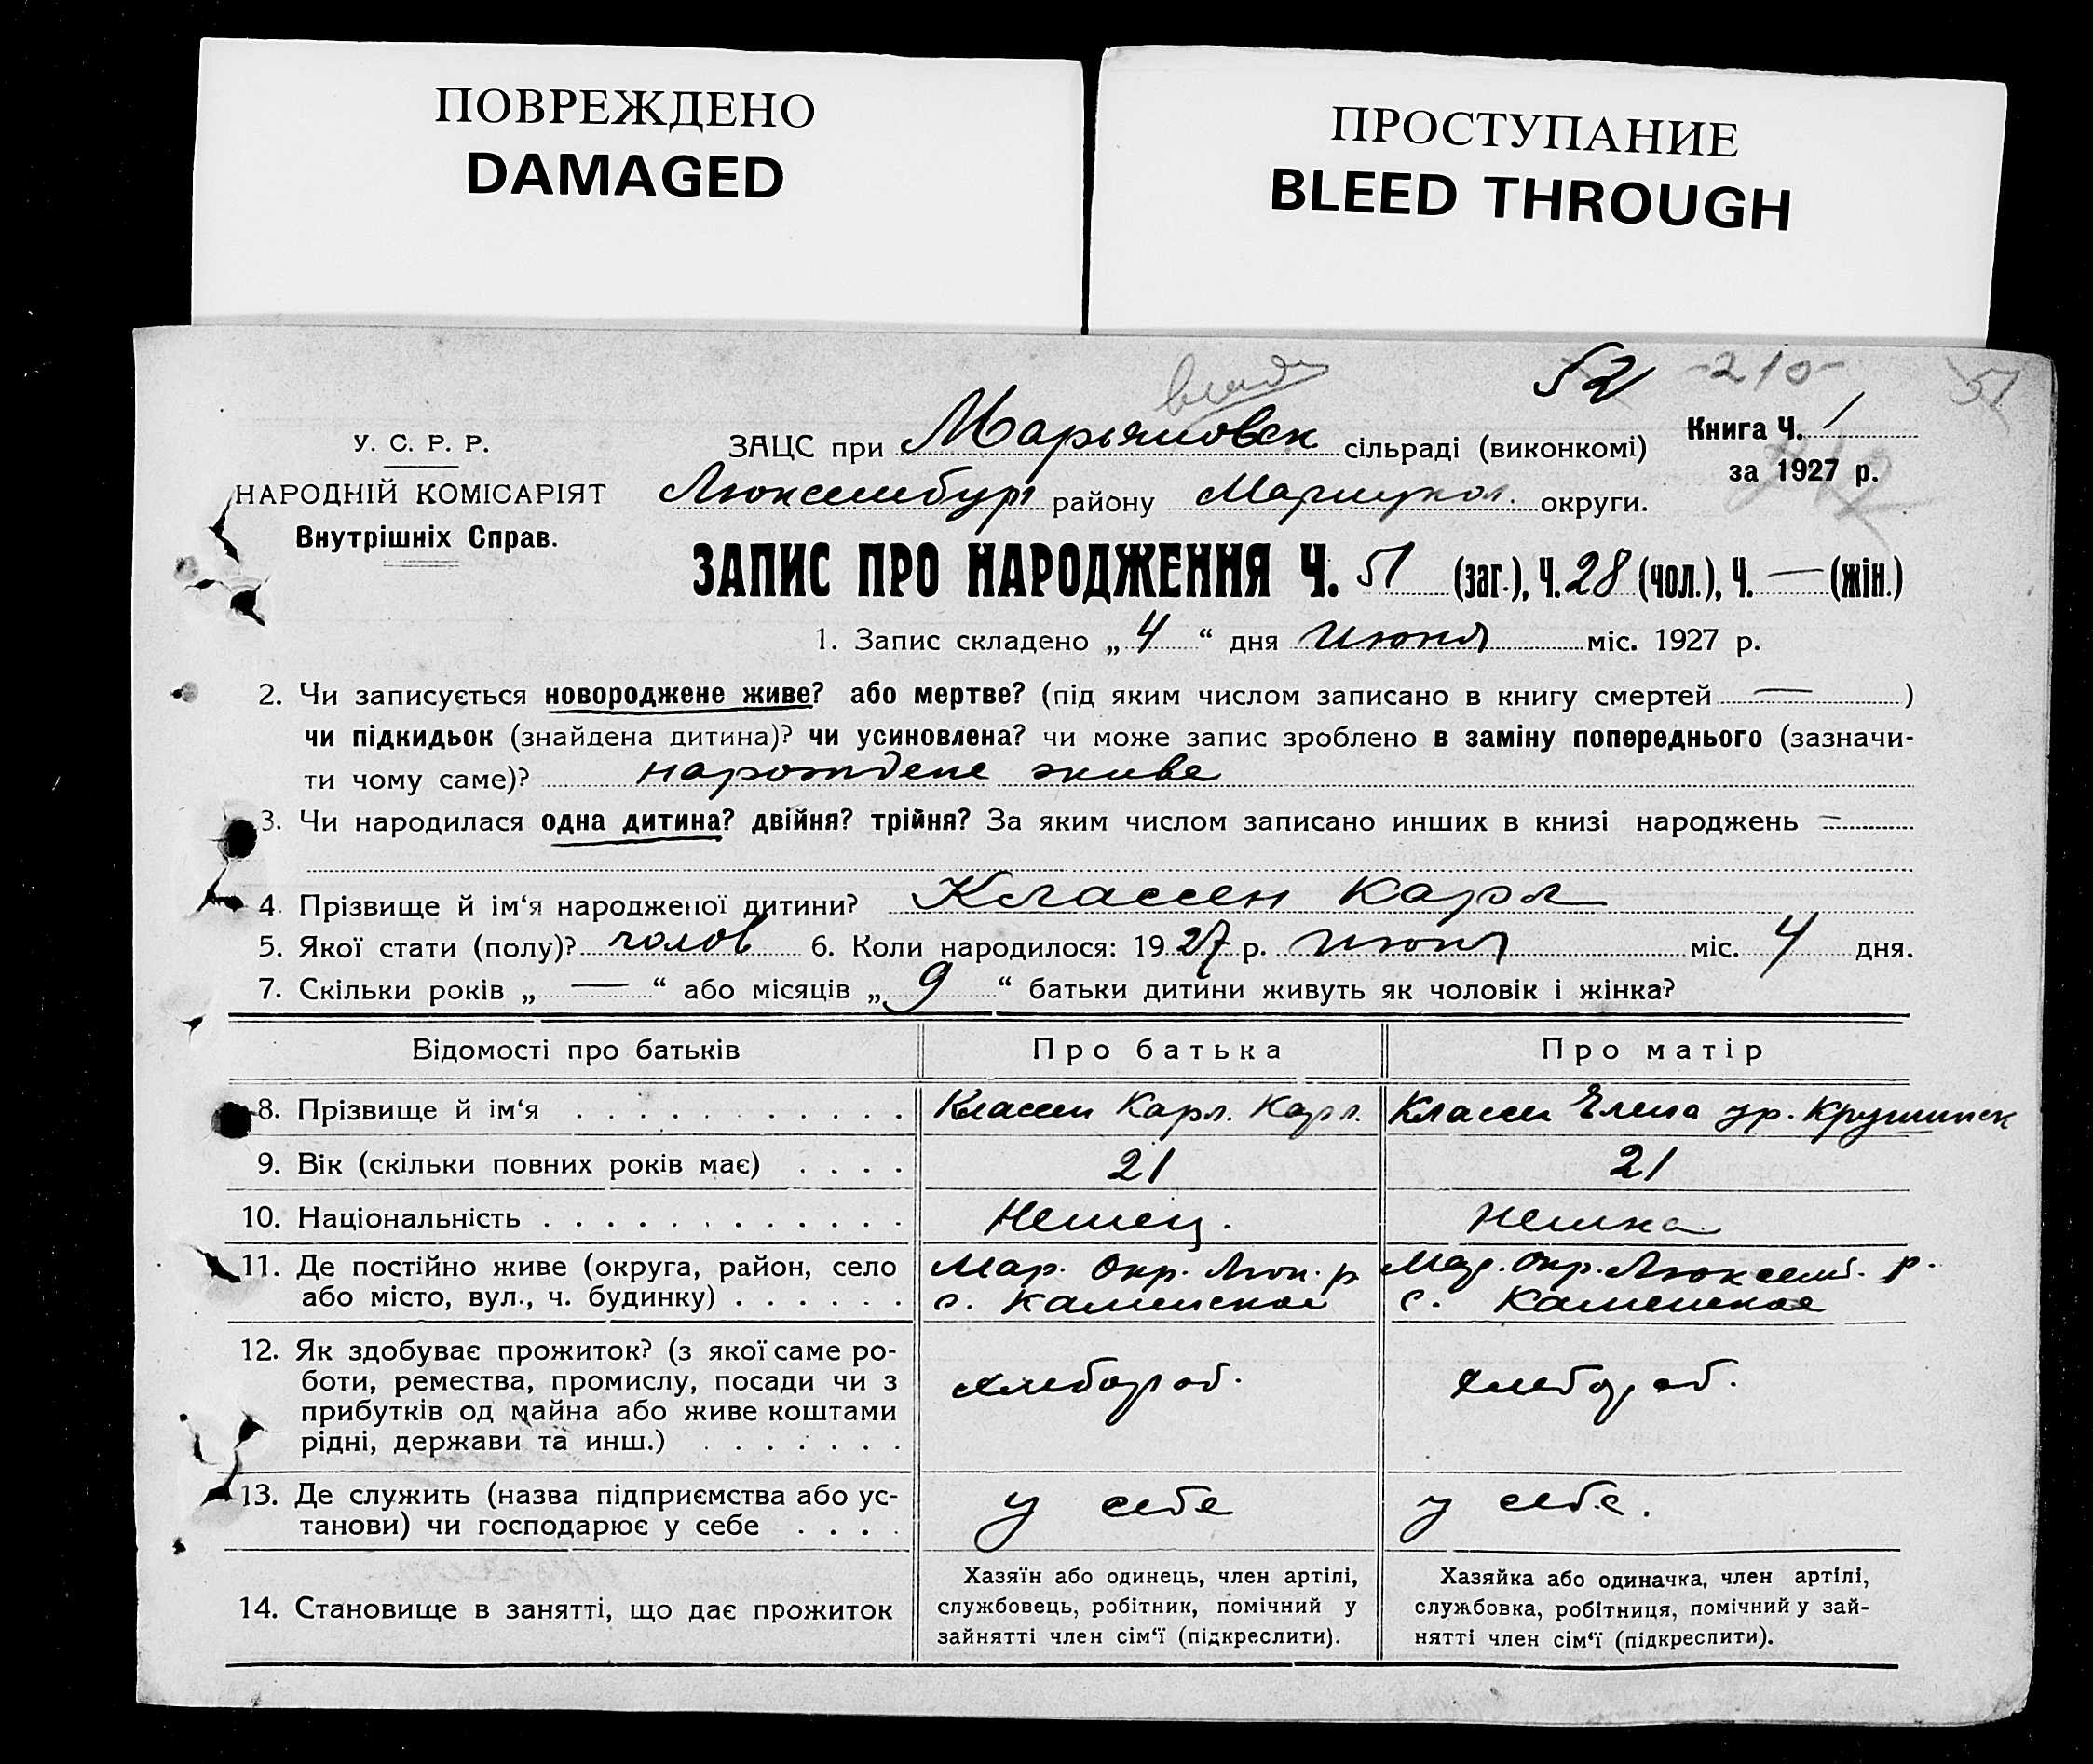 ПОВРЕЖДЕНО
DAMAGED
ПРОСТУПАНИЕ
BLEED THROUGH
52 -210- 51
У. С. Р. Р.
НАРОДНІЙ КОМІСАРІЯТ
Внутрішніх Справ.
ЗАЦС при Марьяновск сільраді (виконкомі)
Люксембург району Мариупол. округи.
Книга Ч. 1
за 1927 р.
ЗАПИС ПРО НАРОДЖЕННЯ Ч. 51 (заг.), Ч. 28 (чол.), Ч. — (жін.)
1. Запис складено „ 4 “ дня июня міс. 1927 р.
2. Чи записується новороджене живе? або мертве? (під яким числом записано в книгу смертей — )
чи підкидьок (знайдена дитина)? чи усиновлена? чи може запис зроблено в заміну попереднього (зазначи-
ти чому саме)? народжене живе
3. Чи народилася одна дитина? двійня? трійня? За яким числом записано инших в книзі народжень —
4. Прізвище й ім‘я народженої дитини? Классен Карл
5. Якої стати (полу)? чолов 6. Коли народилося: 1927 р. июня міс. 4 дня.
7. Скільки років „ — “ або місяців „ 9 “ батьки дитини живуть як чоловік і жінка?
Відомості про батьків Про батька Про матір
8. Прізвище й ім‘я . . . . . . . . . . Классен Карл. Карл. Классен Елена ур. Крушинск
9. Вік (скільки повних років має) . . . . 21 21
10. Національність . . . . . . . . . . . . Немец. Немка
11. Де постійно живе (округа, район, село Мар. Окр. Люк. р Мар. Окр. Люксемб. р.
або місто, вул., ч. будинку) . . . . . . с. Каменское с. Каменское
12. Як здобуває прожиток? (з якої саме ро-
боти, ремества, промислу, посади чи з хлебороб. хлебороб.
прибутків од майна або живе коштами
рідні, держави та инш.) . . . . . . .
13. Де служить (назва підприємства або ус- у себе у себе.
танови) чи господарює у себе . . . .
14. Становище в занятті, що дає прожиток
Хазяїн або одинець, член артілі,
службовець, робітник, помічний у
зайнятті член сім‘ї (підкреслити).
Хазяйка або одиначка, член артілі,
службовка, робітниця, помічний у зай-
нятті член сім‘ї (підкреслити).